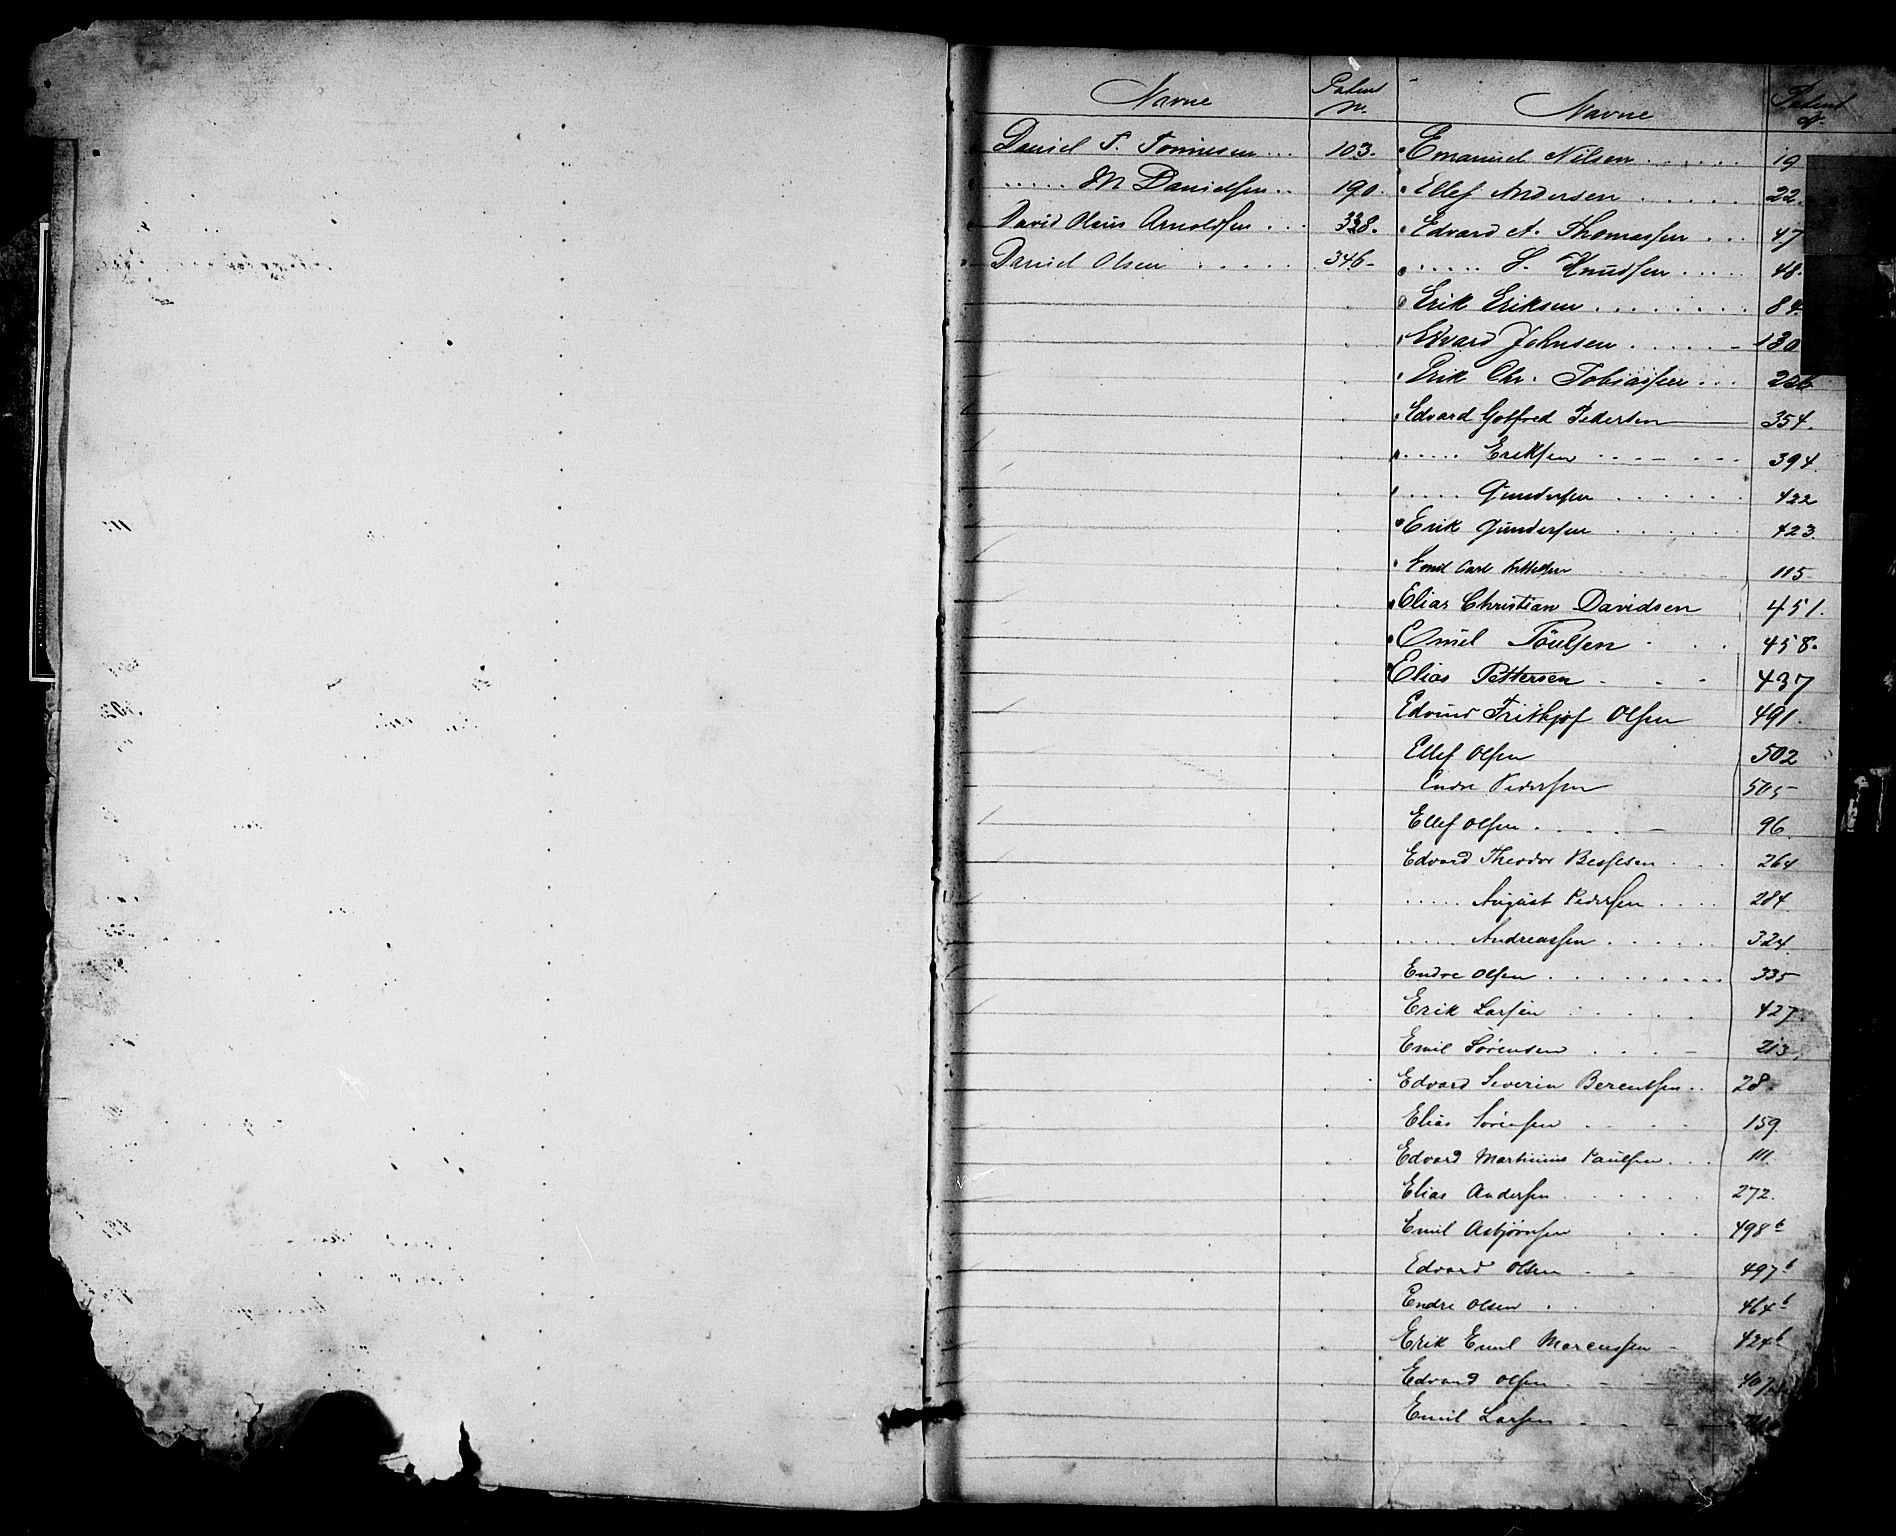 Navne Patent №.
Daniel T. Tønnesen ... 103.
..... M Danielsen .. 190.
David Olaus Arnoldsen ... 338.
Daniel Olsen ..... 346.
Navne Patent №.
Emanuel Nilsen ...... 19
Ellef Andersen ...... 22.
Edvard A. Thomassen ... 47
..... S. Knudsen ..... 48.
Erik Eriksen ........ 84.
Edvard Johnsen ...... 130
Erik Chr. Tobiassen ... 226
Edvard Gotfred Pedersen 354.
..... Eriksen ...... 394
..... Gundersen ...... 422
Erik Gundersen ...... 423
Carl 115.
Elias Christian Davidsen 451.
Emil Poulsen . . . 458.
Elias Pettersen - - - 437
Edvind Frithjof Olsen 491.
Ellef Olsen 502
Endre Pedersen 505
Ellef Olsen ..... 96
Edvard Theodor Bessesen ... 264
..... August Pedersen .... 284
..... Andreassen ...... 324
Endre Olsen ......... 335
Erik Larsen ..... 427.
Emil Sørensen ..... 213.
Edvard Severin Berentsen .. 28.
Elias Sørensen .... 159.
Edvard Martinius Paulsen ... 111.
Elias Andersen ...... 272.
Emil Asbjørnsen ... 498b
Edvard Olsen - - - 497b
Endre Olsen . . 464b
Erik Emil Marcussen - 424b
Edvard Olsen . - - 407
Emil Larsen . - - -